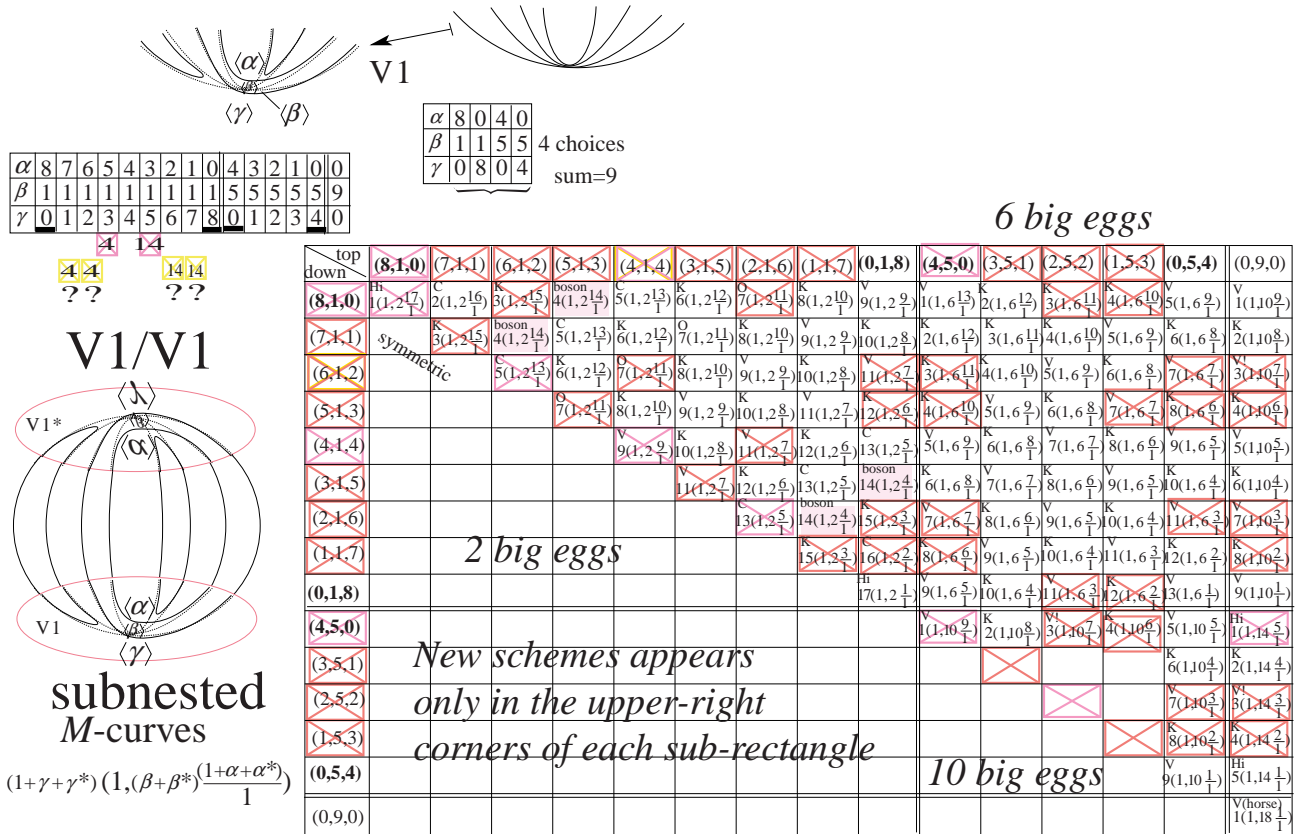 ⟨α⟩
⟨β⟩
⟨γ⟩ ⟨β⟩
V1
α 8 0 4 0
β 1 1 5 5
γ 0 8 0 4
4 choices
sum=9
α 8 7 6 5 4 3 2 1 0 4 3 2 1 0 0
β 1 1 1 1 1 1 1 1 1 5 5 5 5 5 9
γ 0 1 2 3 4 5 6 7 8 0 1 2 3 4 0
4 14
4 4 14 14
? ? ? ?
6 big eggs
top
down
(8,1,0) (7,1,1) (6,1,2) (5,1,3) (4,1,4) (3,1,5) (2,1,6) (1,1,7) (0,1,8) (4,5,0) (3,5,1) (2,5,2) (1,5,3) (0,5,4) (0,9,0)
(8,1,0) Hi 1(1,2 17/1) C 2(1,2 16/1) K 3(1,2 15/1) boson 4(1,2 14/1) C 5(1,2 13/1) K 6(1,2 12/1) O 7(1,2 11/1) K 8(1,2 10/1) V 9(1,2 9/1) V 1(1,6 13/1) K 2(1,6 12/1) K 3(1,6 11/1) K 4(1,6 10/1) V 5(1,6 9/1) V 1(1,10 9/1)
(7,1,1) symmetric K 3(1,2 15/1) boson 4(1,2 14/1) C 5(1,2 13/1) K 6(1,2 12/1) O 7(1,2 11/1) K 8(1,2 10/1) V 9(1,2 9/1) K 10(1,2 8/1) K 2(1,6 12/1) K 3(1,6 11/1) K 4(1,6 10/1) V 5(1,6 9/1) K 6(1,6 8/1) K 2(1,10 8/1)
(6,1,2) C 5(1,2 13/1) K 6(1,2 12/1) O 7(1,2 11/1) K 8(1,2 10/1) V 9(1,2 9/1) K 10(1,2 8/1) V 11(1,2 7/1) K 3(1,6 11/1) K 4(1,6 10/1) V 5(1,6 9/1) K 6(1,6 8/1) V 7(1,6 7/1) V! 3(1,10 7/1)
(5,1,3) O 7(1,2 11/1) K 8(1,2 10/1) V 9(1,2 9/1) K 10(1,2 8/1) V 11(1,2 7/1) K 12(1,2 6/1) K 4(1,6 10/1) V 5(1,6 9/1) K 6(1,6 8/1) V 7(1,6 7/1) K 8(1,6 6/1) K 4(1,10 6/1)
(4,1,4) V 9(1,2 9/1) K 10(1,2 8/1) V 11(1,2 7/1) K 12(1,2 6/1) C 13(1,2 5/1) V 5(1,6 9/1) K 6(1,6 8/1) V 7(1,6 7/1) K 8(1,6 6/1) V 9(1,6 5/1) V 5(1,10 5/1)
(3,1,5) V 11(1,2 7/1) K 12(1,2 6/1) C 13(1,2 5/1) boson 14(1,2 4/1) K 6(1,6 8/1) V 7(1,6 7/1) K 8(1,6 6/1) V 9(1,6 5/1) K 10(1,6 4/1) K 6(1,10 4/1)
(2,1,6) C 13(1,2 5/1) boson 14(1,2 4/1) K 15(1,2 3/1) V 7(1,6 7/1) K 8(1,6 6/1) V 9(1,6 5/1) K 10(1,6 4/1) V 11(1,6 3/1) V 7(1,10 3/1)
(1,1,7) K 15(1,2 3/1) C 16(1,2 2/1) K 8(1,6 6/1) V 9(1,6 5/1) K 10(1,6 4/1) V 11(1,6 3/1) K 12(1,6 2/1) K 8(1,10 2/1)
2 big eggs
(0,1,8) Hi 17(1,2 1/1) V 9(1,6 5/1) K 10(1,6 4/1) V 11(1,6 3/1) K 12(1,6 2/1) V 13(1,6 1/1) V 9(1,10 1/1)
(4,5,0) V 1(1,10 9/1) K 2(1,10 8/1) V! 3(1,10 7/1) K 4(1,10 6/1) V 5(1,10 5/1) Hi 1(1,14 5/1)
(3,5,1) K 6(1,10 4/1) K 2(1,14 4/1)
(2,5,2) V 7(1,10 3/1) V! 3(1,14 3/1)
(1,5,3) K 8(1,10 2/1) K 4(1,14 2/1)
(0,5,4) V 9(1,10 1/1) Hi 5(1,14 1/1)
(0,9,0) V(horse) 1(1,18 1/1)
New schemes appears
only in the upper-right
corners of each sub-rectangle
10 big eggs
V1/V1
V1*
⟨α⟩
⟨α⟩
V1
⟨β⟩
⟨γ⟩
subnested
M-curves
(1+γ+γ*)(1,(β+β*) (1+α+α*)/1)